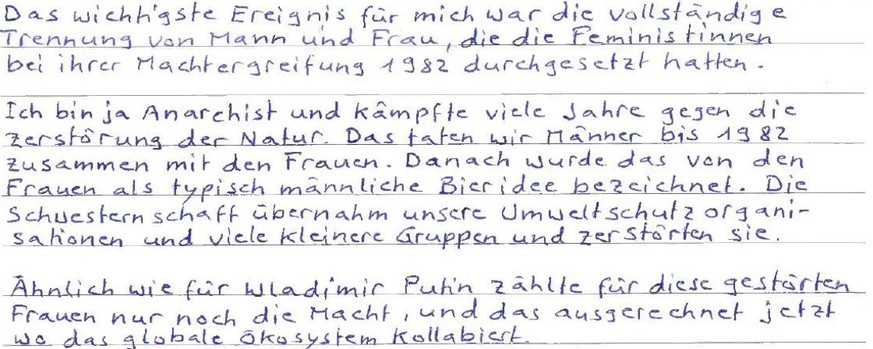 Das wichtigste Ereignis für mich war die vollständige
Trennung von Mann und Frau, die die Feministinnen
bei ihrer Machtergreifung 1982 durchgesetzt hatten.
Ich bin ja Anarchist und kämpfte viele Jahre gegen die
Zerstörung der Natur. Das taten wir Männer bis 1982
zusammen mit den Frauen. Danach wurde das von den
Frauen als typisch männliche Bieridee bezeichnet. Die
Schwesternschaft übernahm unsere Umweltschutzorgani-
sationen und viele kleinere Gruppen und zerstörten sie.
Ähnlich wie für Wladimir Putin zählte für diese gestörten
Frauen nur noch die Macht, und das ausgerechnet jetzt
wo das globale Ökosystem kollabiert.